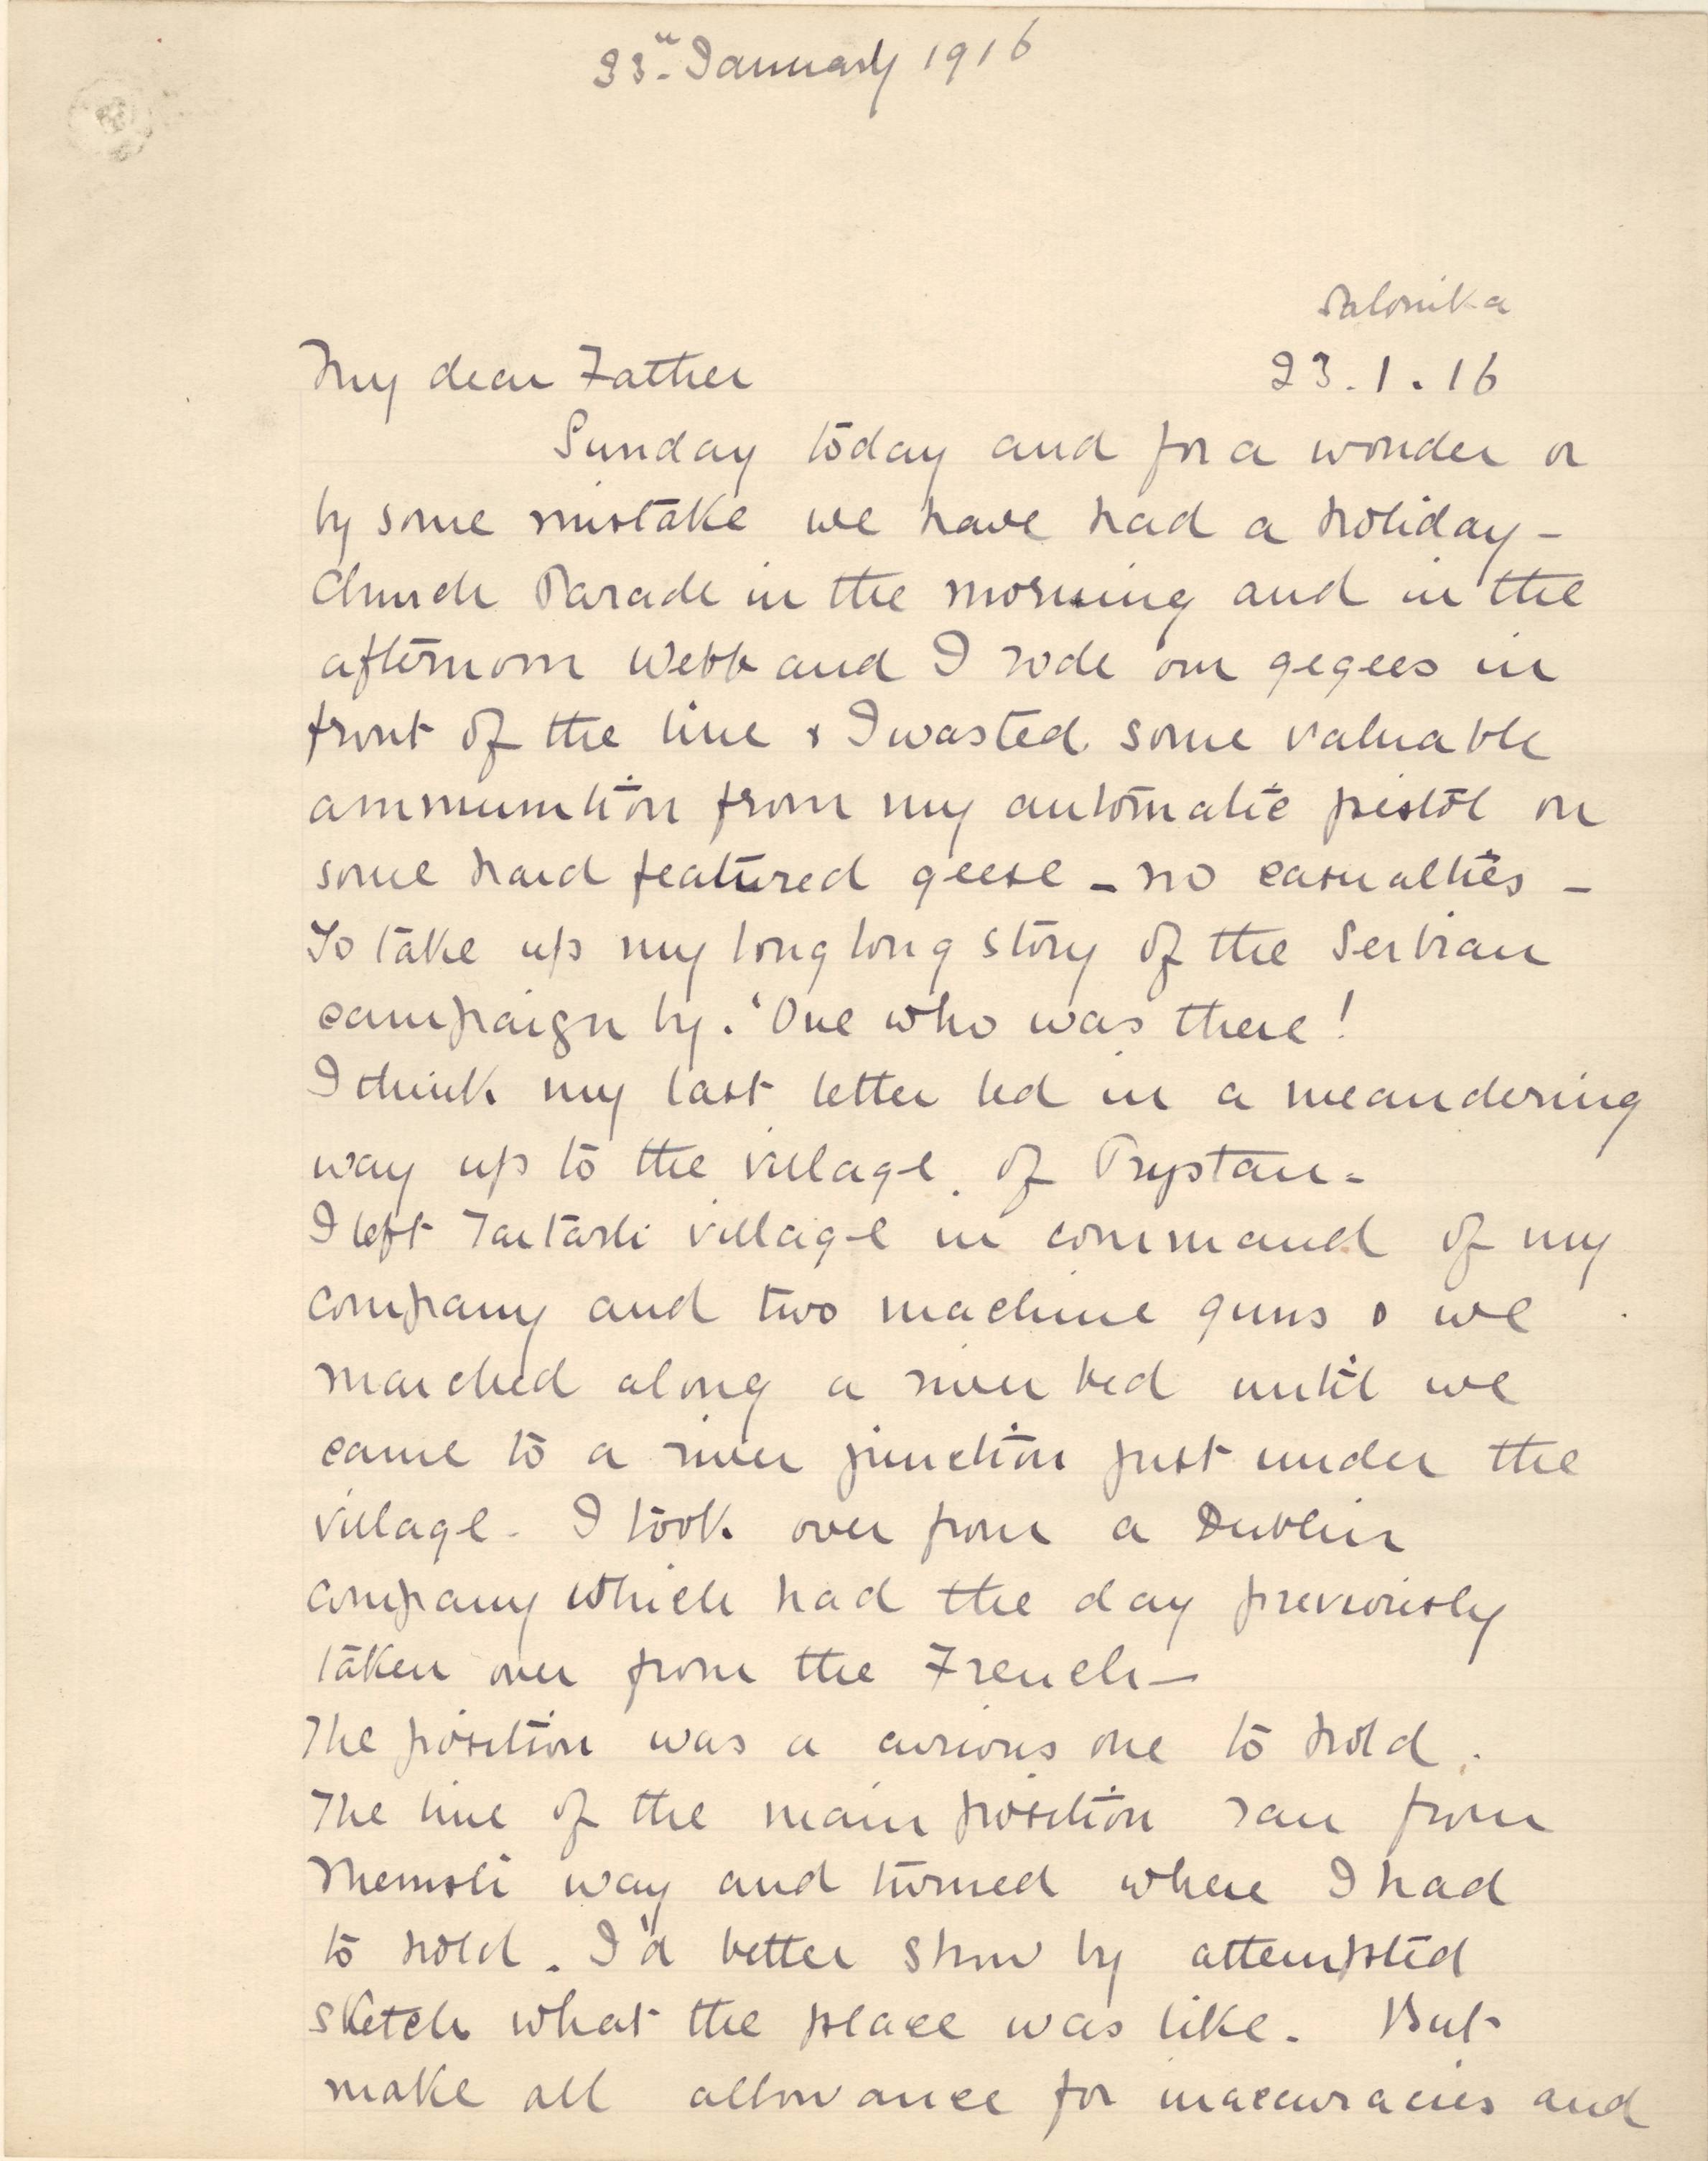 23rd January 1916
Salonika
My dear Father
23.1.16
Sunday today and for a wonder or
by some mistake we have had a holiday –
Church Parade in the morning and in the
afternoon Webb and I rode our gegees in
front of the line & I wasted some valuable
ammunition from my automatic pistol on
some hard featured geese – no casualties –
To take up my long long story of the Serbian
campaign by. 'One who was there!
I think my last letter led in a meandering
way up to the village of Prystan.
I left Tartarli village in command of my
company and two machine guns & we
marched along a river bed until we
came to a river junction just under the
village. I took over from a Dublin
company which had the day previously
taken over from the French –
The position was a curious one to hold.
The line of the main position ran from
Memsli way and turned where I had
to hold. I'd better show by attempted
sketch what the place was like. But
make all allowance for inaccuracies and